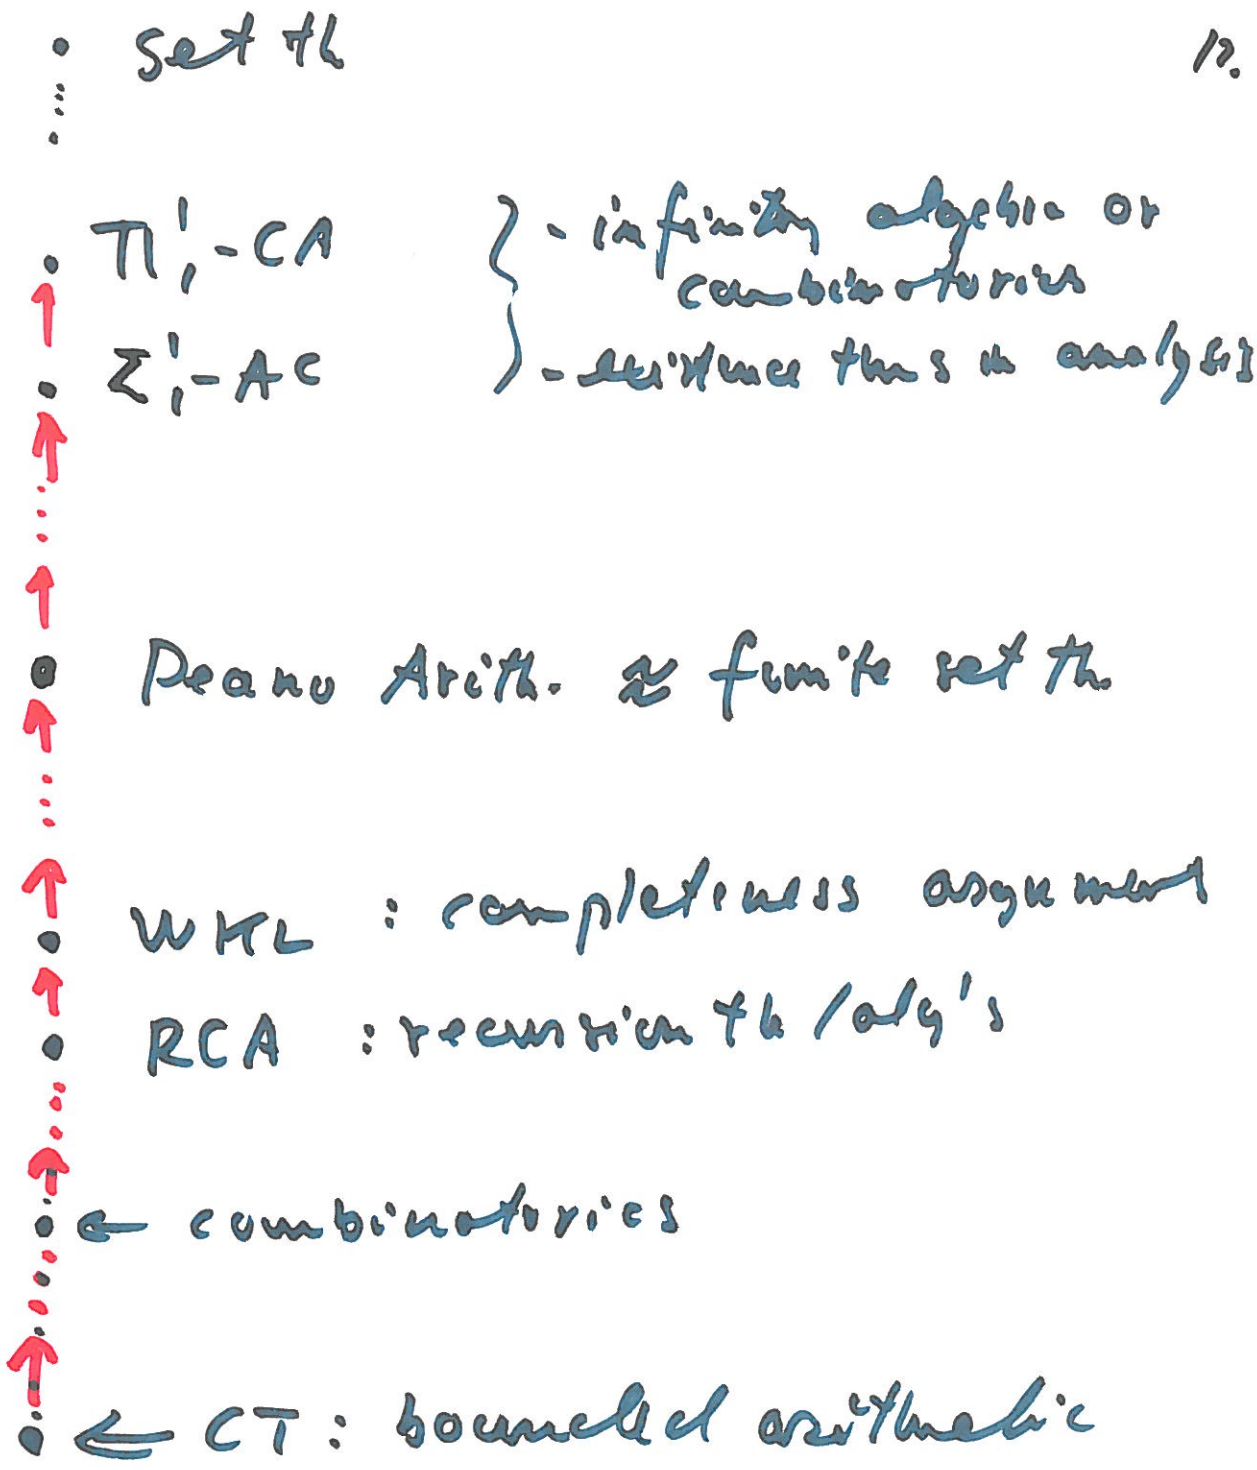 set th
12.
Π¹₁-CA } - infinitary algebra or
combinatorics
Σ¹₁-AC - existence thms in analysis
Peano Arith. ≈ finite set th.
WKL : completeness argument
RCA : recursion th/alg's
← combinatorics
⇐ CT : bounded arithmetic